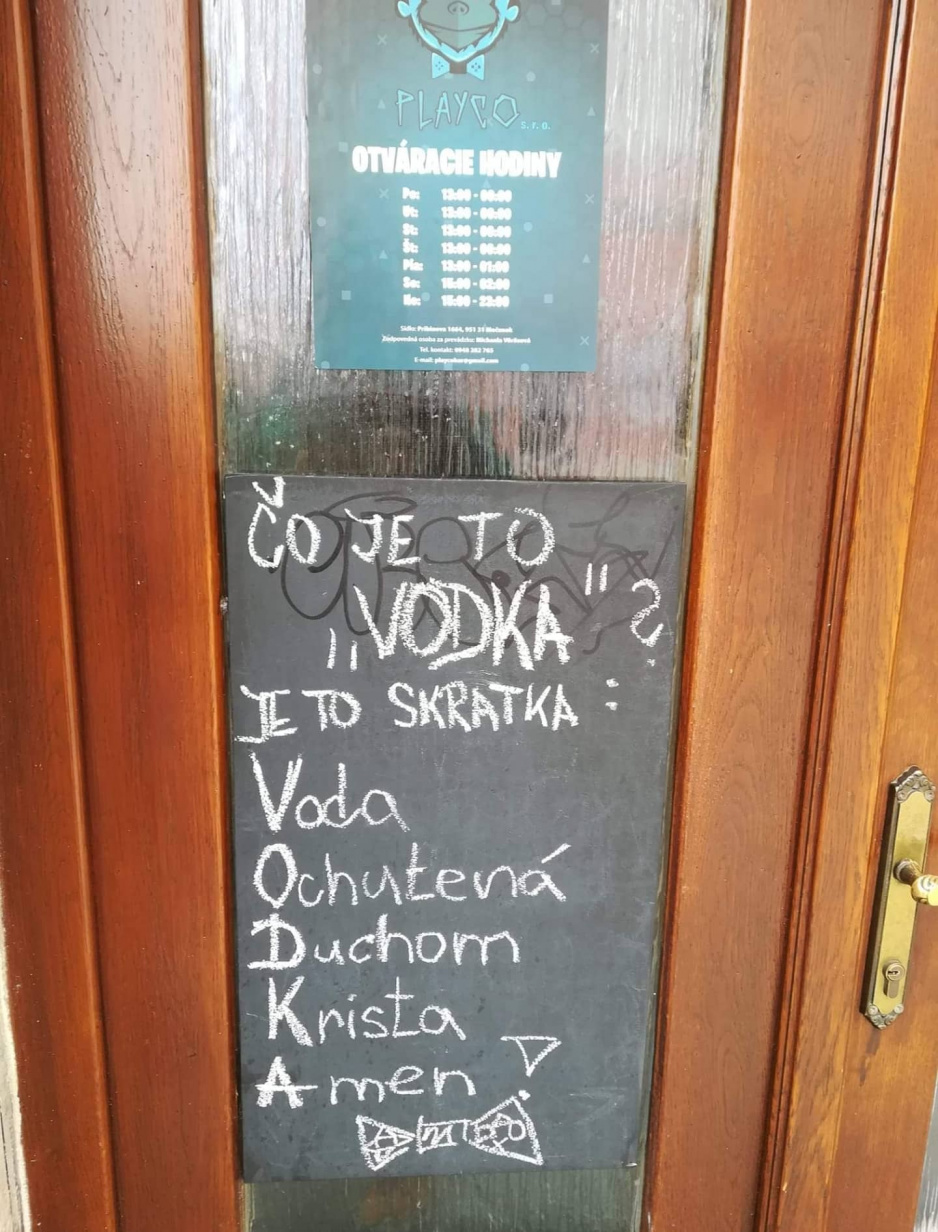 PLAYCO s. r. o.
OTVÁRACIE HODINY
Po: 13:00 - 00:00
Ut: 13:00 - 00:00
St: 13:00 - 00:00
Št: 13:00 - 00:00
Pia: 13:00 - 01:00
So: 15:00 - 02:00
Ne: 15:00 - 23:00
Sídlo: Pribinova 1664, 951 31 Močenok
Zodpovedná osoba za prevádzku: Michaela
Tel. kontakt: 0948 382 765
E-mail: playcobar@gmail.com
ČO JE TO
„VODKA"?
JE TO SKRATKA:
Voda
Ochutená
Duchom
Krista
Amen!